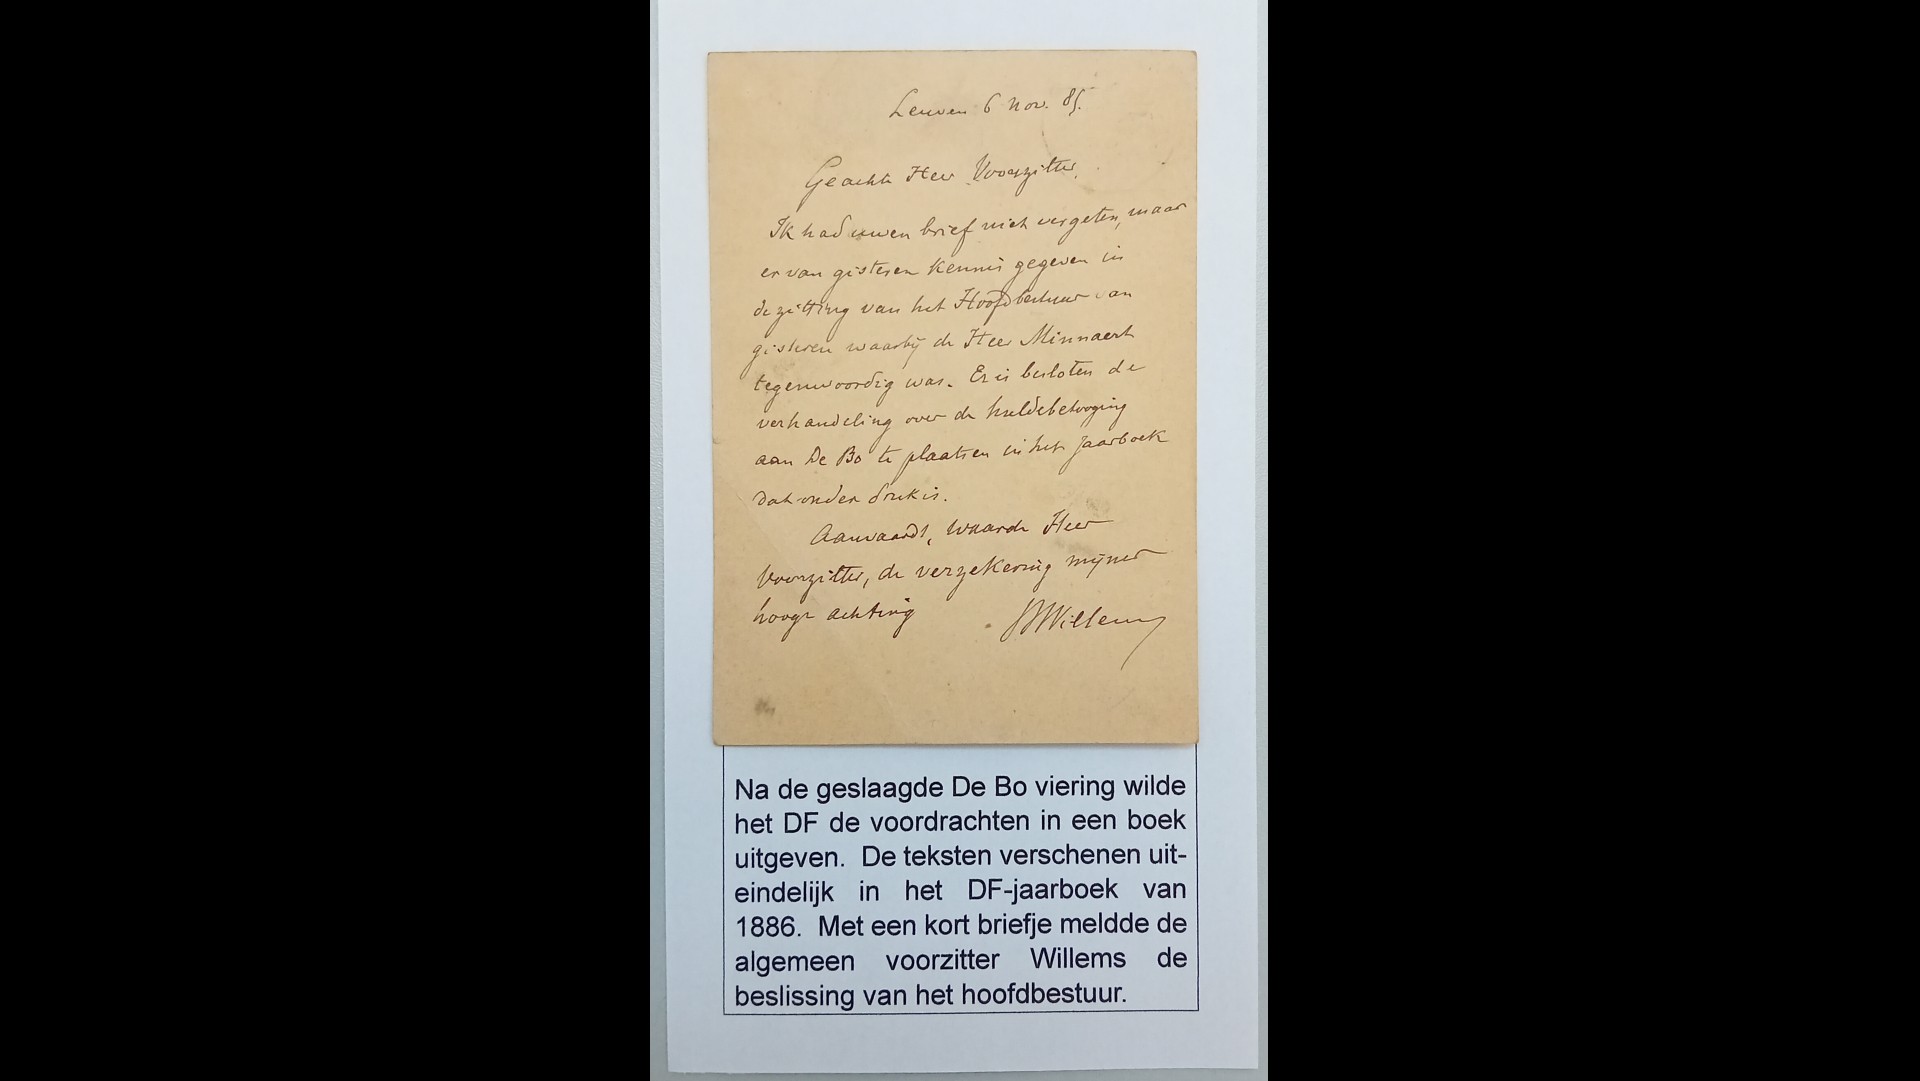 Leuven 6 Nov. 85.
Geachte Heer Voorzitter,
Ik had uwen brief niet vergeten, maar
er van gisteren kennis gegeven in
de zitting van het Hoofdbestuur van
gisteren waarbij de Heer Minnaert
tegenwoordig was. Er is besloten de
verhandeling over de huldebetooging
aan De Bo te plaatsen in het Jaarboek
dat onder druk is.
Aanvaardt, waarde Heer
Voorzitter, de verzekering mijner
hooge achting
Willems
Na de geslaagde De Bo viering wilde
het DF de voordrachten in een boek
uitgeven. De teksten verschenen uit-
eindelijk in het DF-jaarboek van
1886. Met een kort briefje meldde de
algemeen voorzitter Willems de
beslissing van het hoofdbestuur.